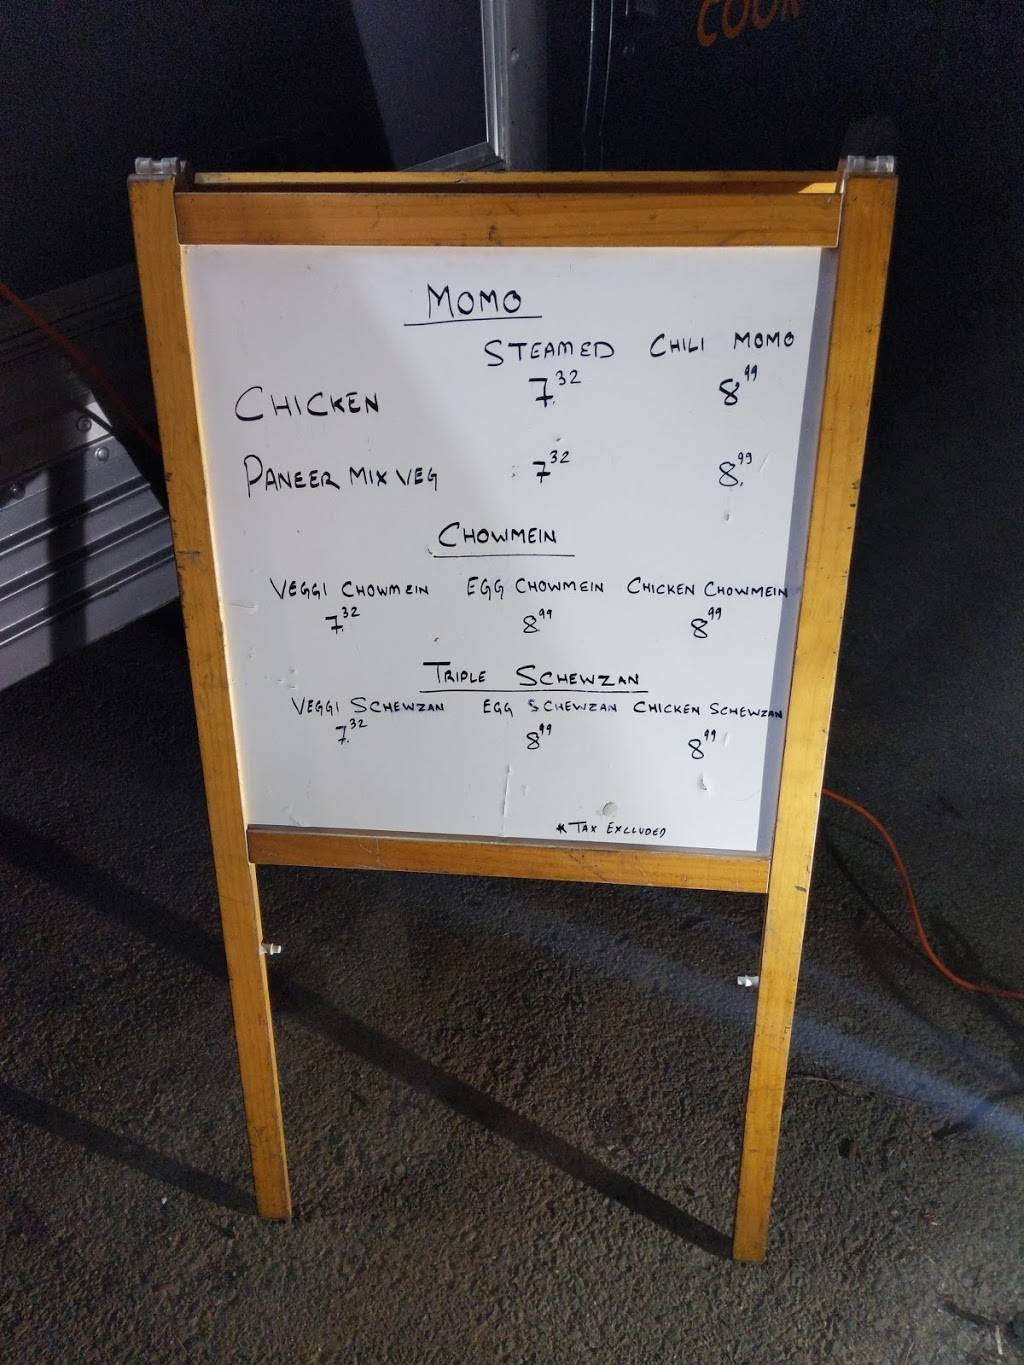 COOK
MOMO
STEAMED CHILI MOMO
CHICKEN 7.32 8.99
PANEER MIX VEG 7.32 8.99
CHOWMEIN
VEGGI CHOWMEIN EGG CHOWMEIN CHICKEN CHOWMEIN
7.32 8.99 8.99
TRIPLE SCHEWZAN
VEGGI SCHEWZAN EGG SCHEWZAN CHICKEN SCHEWZAN
7.32 8.99 8.99
* TAX EXCLUDED